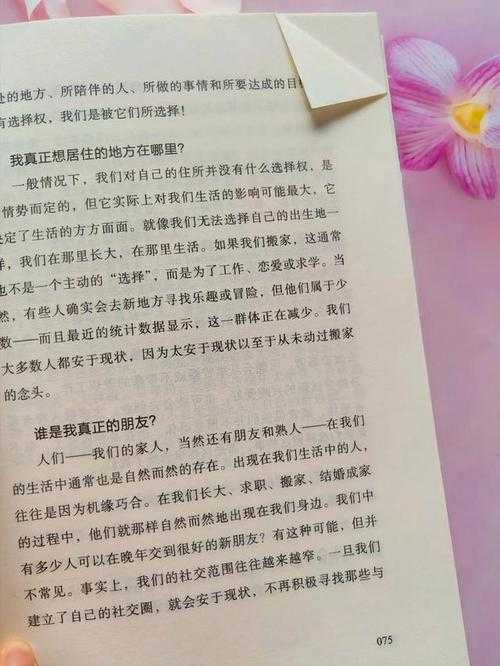 处的地方、所陪伴的人、所做的事情和所要达成的目
有选择权，我们是被它们所选择！
我真正想居住的地方在哪里？
一般情况下，我们对自己的住所并没有什么选择权，是
情势而定的，但它实际上对我们生活的影响可能最大，它
决定了生活的方方面面。就像我们无法选择自己的出生地一
样，我们在那里长大，在那里生活。如果我们搬家，这通常
也不是一个主动的“选择”，而是为了工作、恋爱或求学。当
然，有些人确实会去新地方寻找乐趣或冒险，但他们属于少
数——而且最近的统计数据显示，这一群体正在减少。我们
大多数人都安于现状，因为太安于现状以至于从未动过搬家
的念头。
谁是我真正的朋友？
人们——我们的家人，当然还有朋友和熟人——在我们
的生活中通常也是自然而然的存在。出现在我们生活中的人，
往往是因为机缘巧合。在我们长大、求职、搬家、结婚成家
的过程中，他们就那样自然而然地出现在我们身边。我们中
有多少人可以在晚年交到很好的新朋友？有这种可能，但并
不常见。事实上，我们的社交范围往往越来越窄。一旦我们
建立了自己的社交圈，就会安于现状，不再积极寻找那些与
075